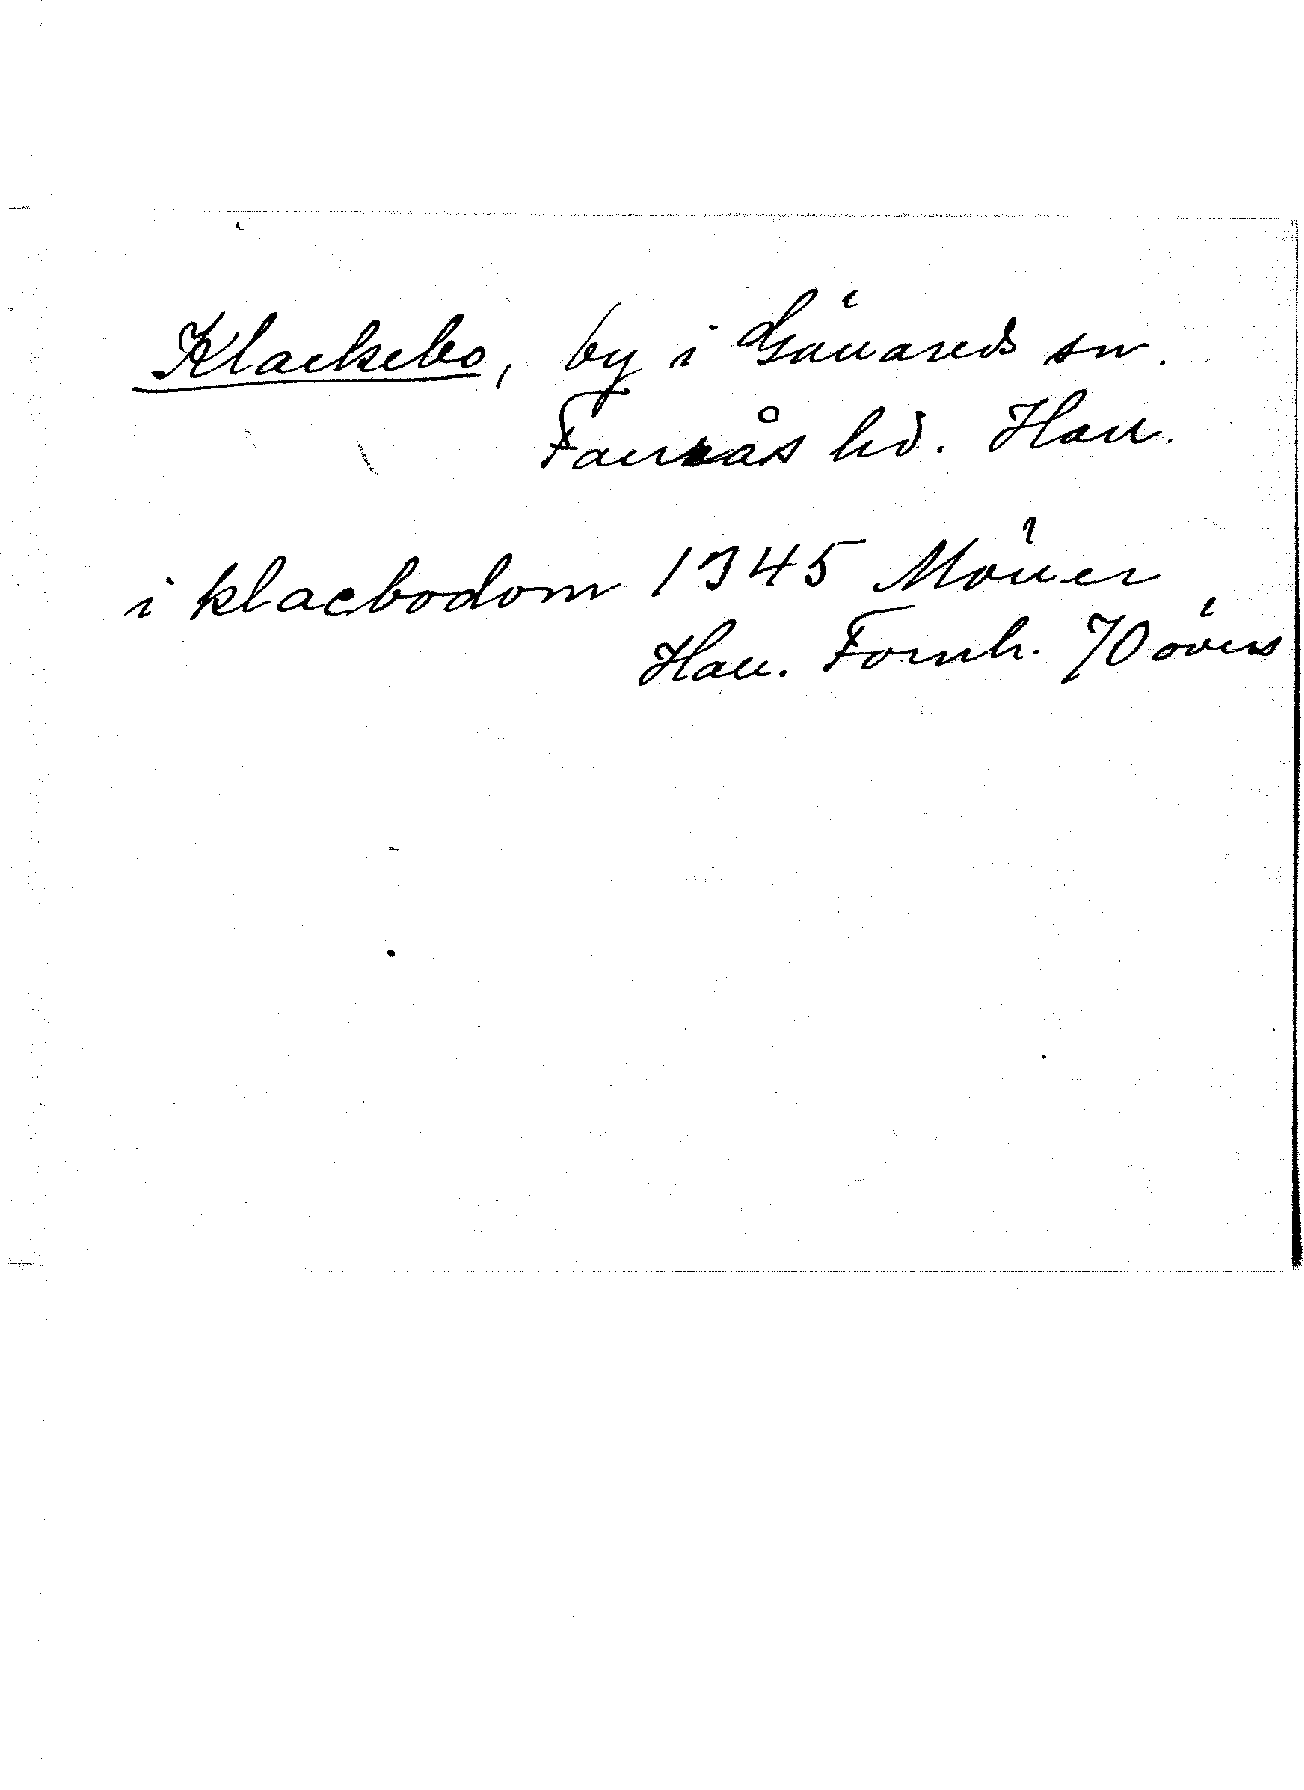 Klackebo, by i Gällareds sn.
Faurås hd. Hall.
i klacbodom 1345 Möller
Hall. Fornh. 70 övers